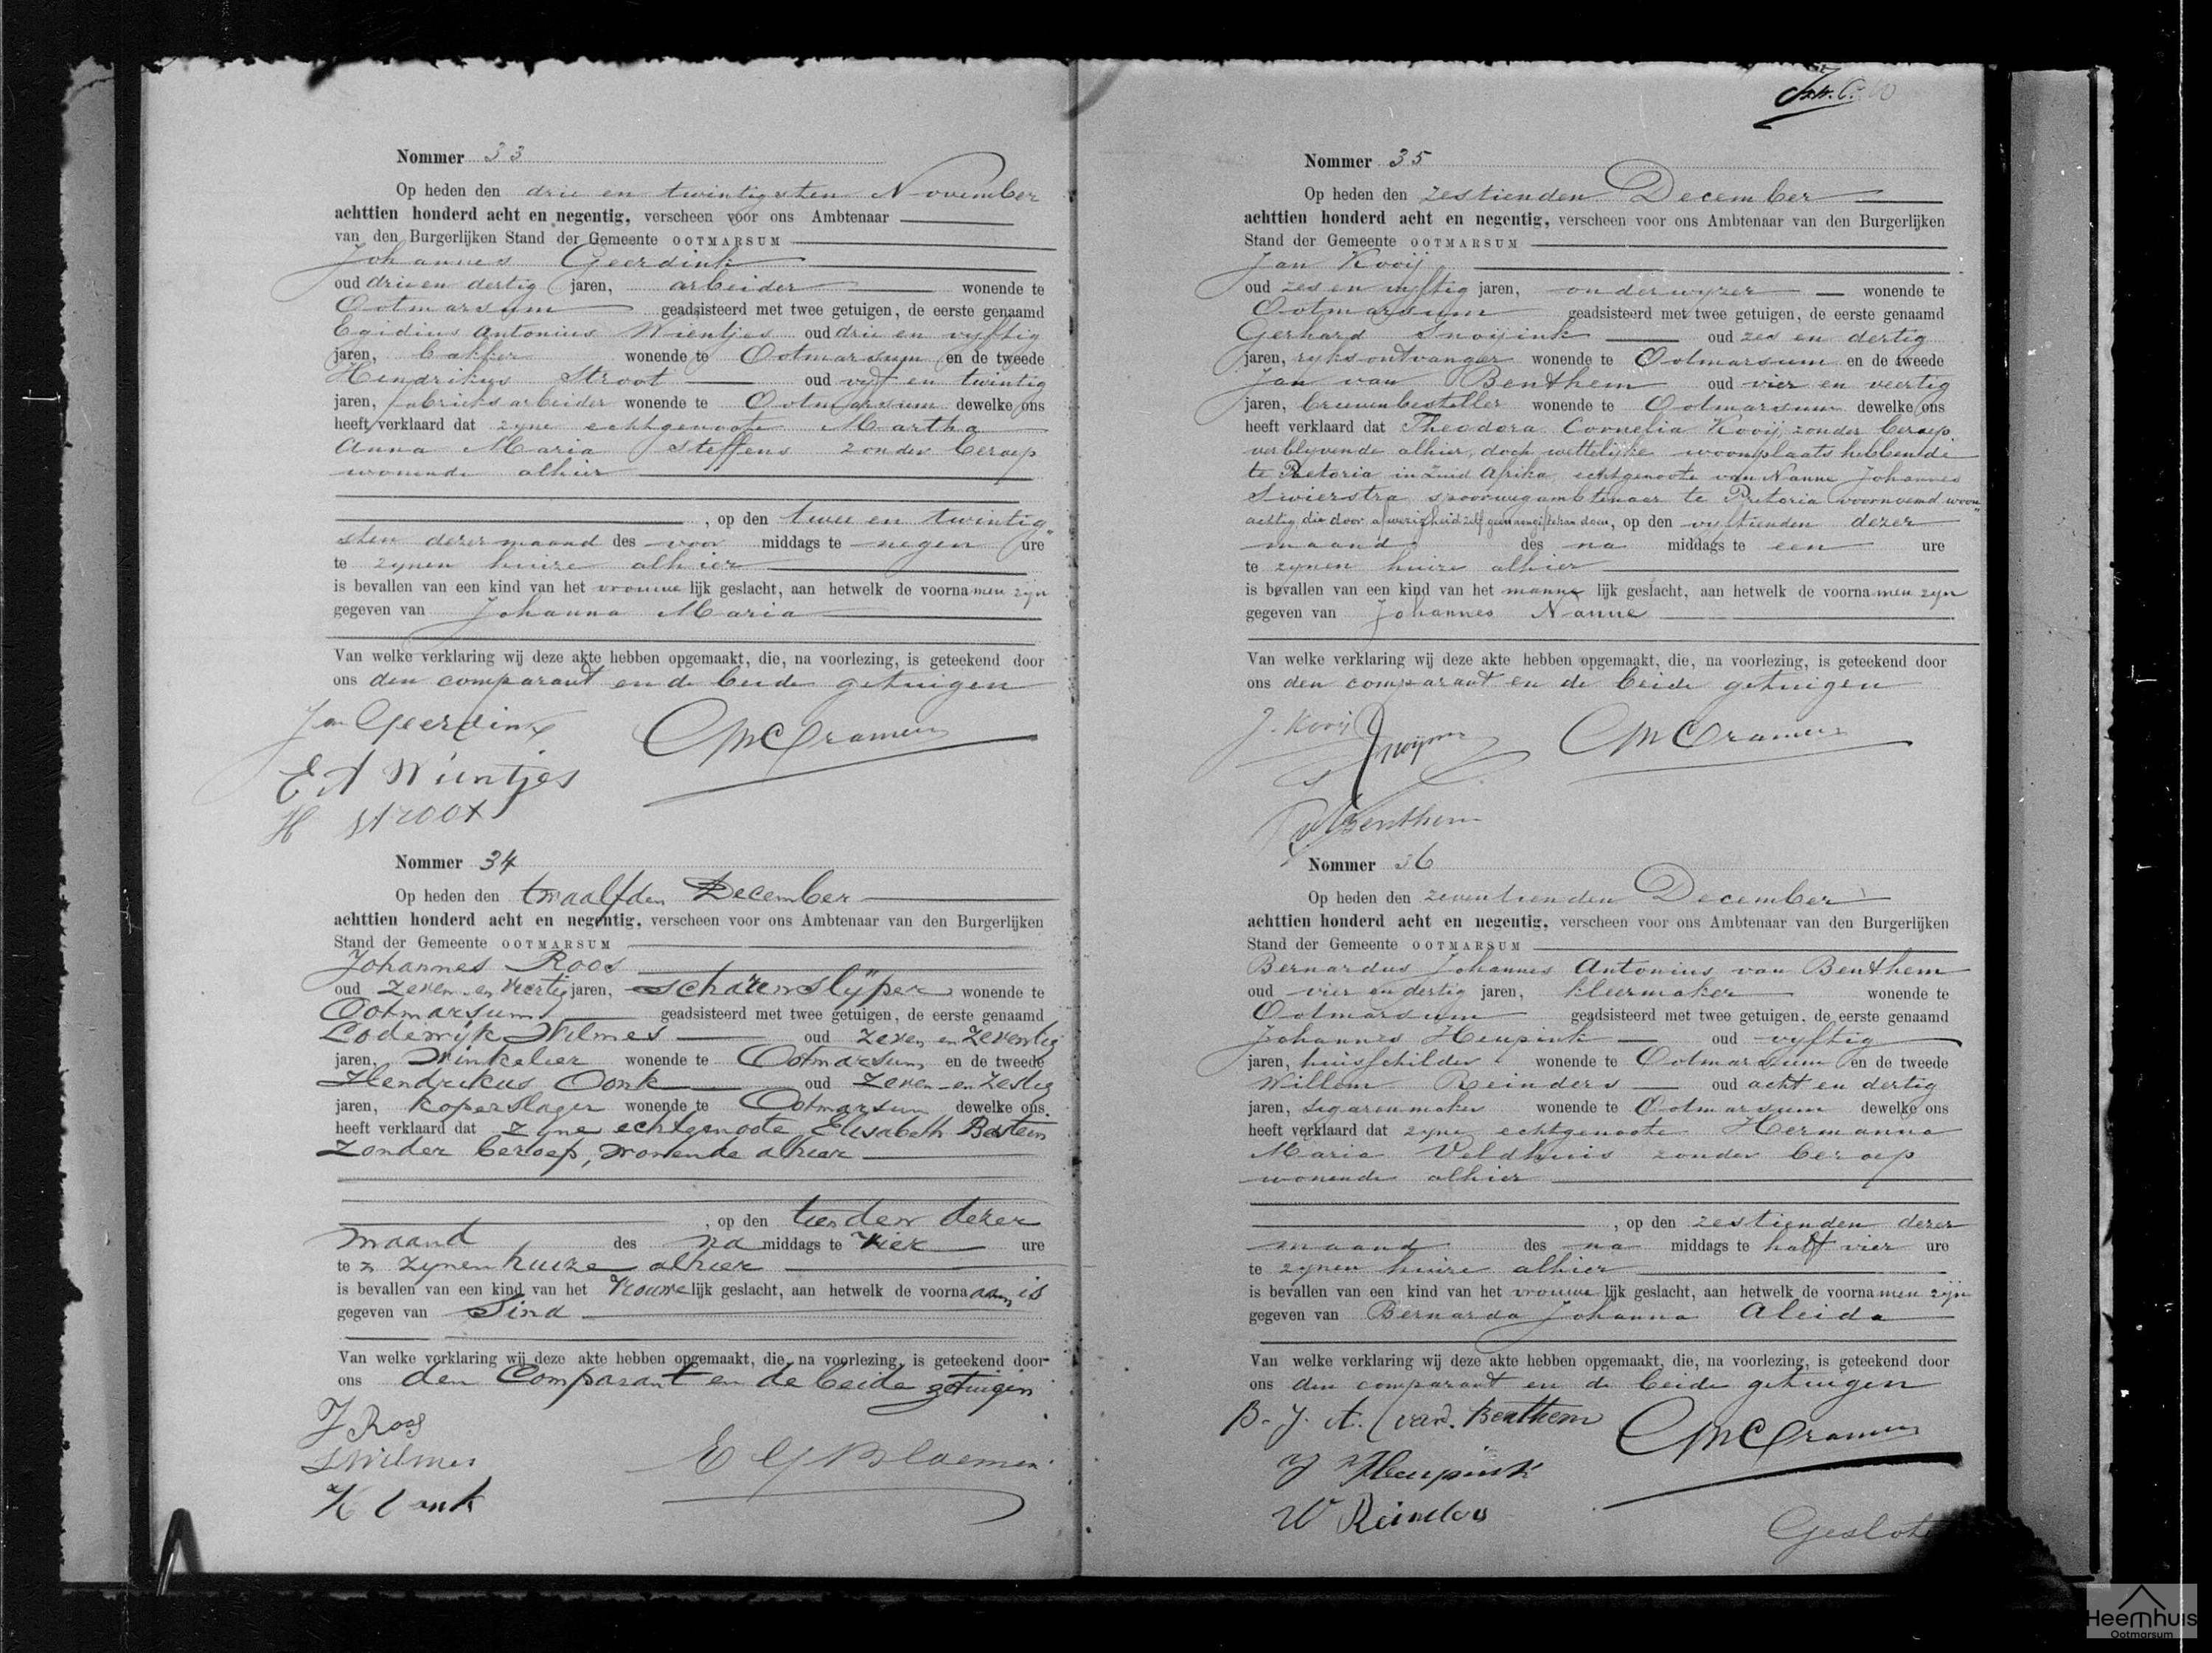 Nommer 33
Op heden den drie en twintigsten November
achttien honderd acht en negentig, verscheen voor ons Ambtenaar
van den Burgerlijken Stand der Gemeente OOTMARSUM
Johannes Geerdink
oud drie en dertig jaren, arbeider wonende te
Ootmarsum geadsisteerd met twee getuigen, de eerste genaamd
Egidius Antonius Wientjes oud drie en vyftig
jaren, bakker wonende te Ootmarsum en de tweede
Hendrikus Stroot oud vyf en twintig
jaren, fabrieksarbeider wonende te Ootmarsum dewelke ons
heeft verklaard dat zyne echtgenoote Martha
Anna Maria Steffens zonder beroep
wonende alhier
, op den twee en twintig"
sten dezer maand des voor middags te negen ure
te zynen huize alhier
is bevallen van een kind van het vrouwe lijk geslacht, aan hetwelk de voornamen zyn
gegeven van Johanna Maria
Van welke verklaring wij deze akte hebben opgemaakt, die, na voorlezing, is geteekend door
ons den comparant en de beide getuigen
Geerdink CMCramer
E A Wientjes
H Stroot
Nommer 34
Op heden den twaalfden December
achttien honderd acht en negentig, verscheen voor ons Ambtenaar van den Burgerlijken
Stand der Gemeente OOTMARSUM
Johannes Roos
oud zeven en veertig jaren, scharenslyper wonende te
Ootmarsum geadsisteerd met twee getuigen, de eerste genaamd
Lodewyk Wilmes oud zeven en zeventig
jaren, Winkelier wonende te Ootmarsum en de tweede
Hendrikus Oonk oud zeven en zestig
jaren, koperslager wonende te Ootmarsum dewelke ons
heeft verklaard dat zyne echtgenoote Elisabeth
zonder beroep, wonende alhier
, op den tienden dezer
maand des na middags te vier ure
te zynen huize alhier
is bevallen van een kind van het vrouwe lijk geslacht, aan hetwelk de voornaam is
gegeven van Sina
Van welke verklaring wij deze akte hebben opgemaakt, die, na voorlezing, is geteekend door
ons den Comparant en de beide getuigen
J Roos
L Wilmes E G Bloemen
H Oonk
Nommer 35
Op heden den zestienden December
achttien honderd acht en negentig, verscheen voor ons Ambtenaar van den Burgerlijken
Stand der Gemeente OOTMARSUM
Jan Kooij
oud zes en vyftig jaren, onderwyzer wonende te
Ootmarsum geadsisteerd met twee getuigen, de eerste genaamd
Gerhard Snoijink oud zes en dertig
jaren, ryksontvanger wonende te Ootmarsum en de tweede
Jan van Benthem oud vier en veertig
jaren, brievenbesteller wonende te Ootmarsum dewelke ons
heeft verklaard dat Theodora Cornelia Kooij zonder beroep
verblyvende alhier, doch wettelyke woonplaats hebbende
te Pretoria in Zuid Afrika, echtgenoote van Nanne Johannes
Swierstra spoorwegambtenaar te Pretoria voornoemd woon"
achtig die door afwezigheid zelf geen aangifte kan doen, op den vyftienden dezer
maand des na middags te een ure
te zynen huize alhier
is bevallen van een kind van het manne lijk geslacht, aan hetwelk de voornamen zyn
gegeven van Johannes Nanne
Van welke verklaring wij deze akte hebben opgemaakt, die, na voorlezing, is geteekend door
ons den comparant en de beide getuigen
J. Kooij CMCramer
Benthem
Nommer 36
Op heden den zeventienden December
achttien honderd acht en negentig, verscheen voor ons Ambtenaar van den Burgerlijken
Stand der Gemeente OOTMARSUM
Bernardus Johannes Antonius van Benthem
oud vier en dertig jaren, kleermaker wonende te
Ootmarsum geadsisteerd met twee getuigen, de eerste genaamd
Johannes Heupink oud vyftig
jaren, huisschilder wonende te Ootmarsum en de tweede
Willem Reinders oud acht en dertig
jaren, sigarenmaker wonende te Ootmarsum dewelke ons
heeft verklaard dat zyne echtgenoote Hermanna
Maria Veldhuis zonder beroep
wonende alhier
, op den zestienden dezer
maand des na middags te half vier ure
te zynen huize alhier
is bevallen van een kind van het vrouwe lijk geslacht, aan hetwelk de voornamen zijn
gegeven van Bernarda Johanna Aleida
Van welke verklaring wij deze akte hebben opgemaakt, die, na voorlezing, is geteekend door
ons den comparant en de beide getuigen
B. J. A. van Benthem CMCramer
J Heupink
W Reinders
Heemhuis
Ootmarsum